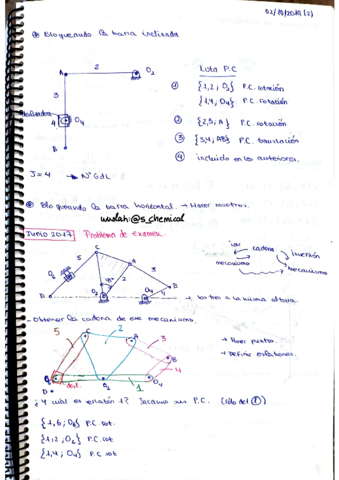 02/10/2019 (2)
⊛ Bloqueando la barra inclinada
Lista P.C
A 2 O2
① {1,2; O2} P.C. rotación
{1,4; O4} P.C. rotación
3
② {2,3; A} P.C. rotación
O4
③ {3,4; AB} P.C. translación
B
④ incluido en los anteriores.
J=4 → Nº GdL
⊛ Bloqueando la barra horizontal. → Hacer nosotros.
wuolah: @s_chemical
Junio 2017 Problema de examen.
inv cadena inversión
mecanismo mecanismo
C
5 A
O6 2 3
O2 B
D O4 4
→ los tres a la misma altura.
- Obtener la cadena de ese mecanismo.
5 C 2 A 3
→ Poner puntos.
→ Definir eslabones.
B
4
D O2 1 O4
¿Y cuál es eslabón 1? Sacamos sus P.C. (sólo del ①)
{1,6; O6} P.C. rot.
{1,2; O2} P.C. rot
{1,4; O4} P.C. rot